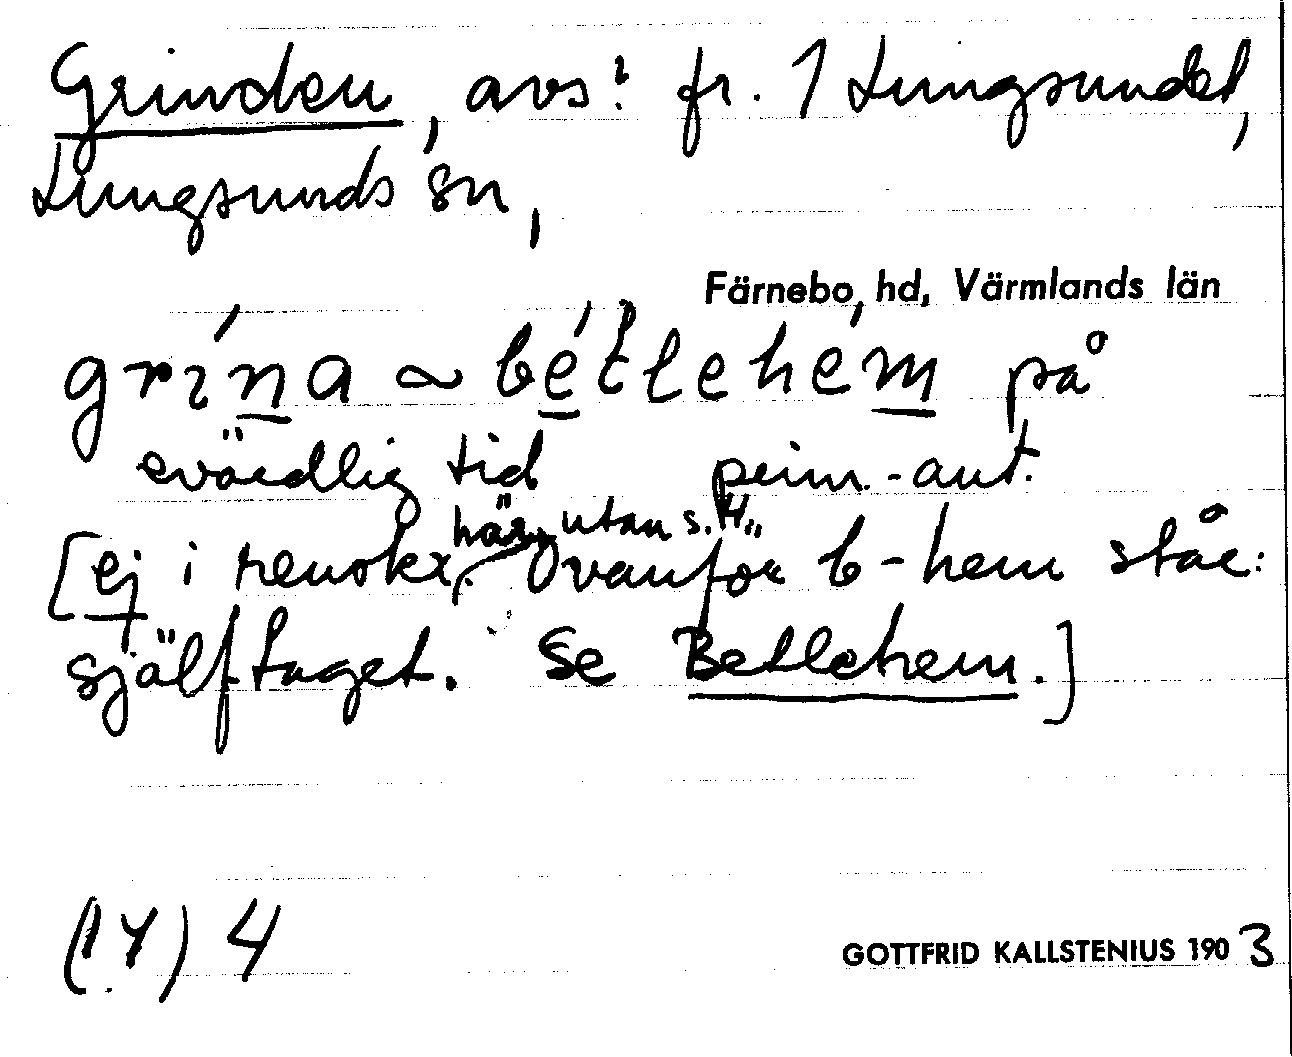 Grinden, avs? fr. 1 Lungsundet,
Lungsunds sn,
Färnebo hd, Värmlands län
grina ~ betlehem på
ovärdlig tid prim.-ant.
här utan s.H.
[ej i renskr. Ovanför b-hem står:
själftaget. Se Betlehem.]
(14) 4
GOTTFRID KALLSTENIUS 1903